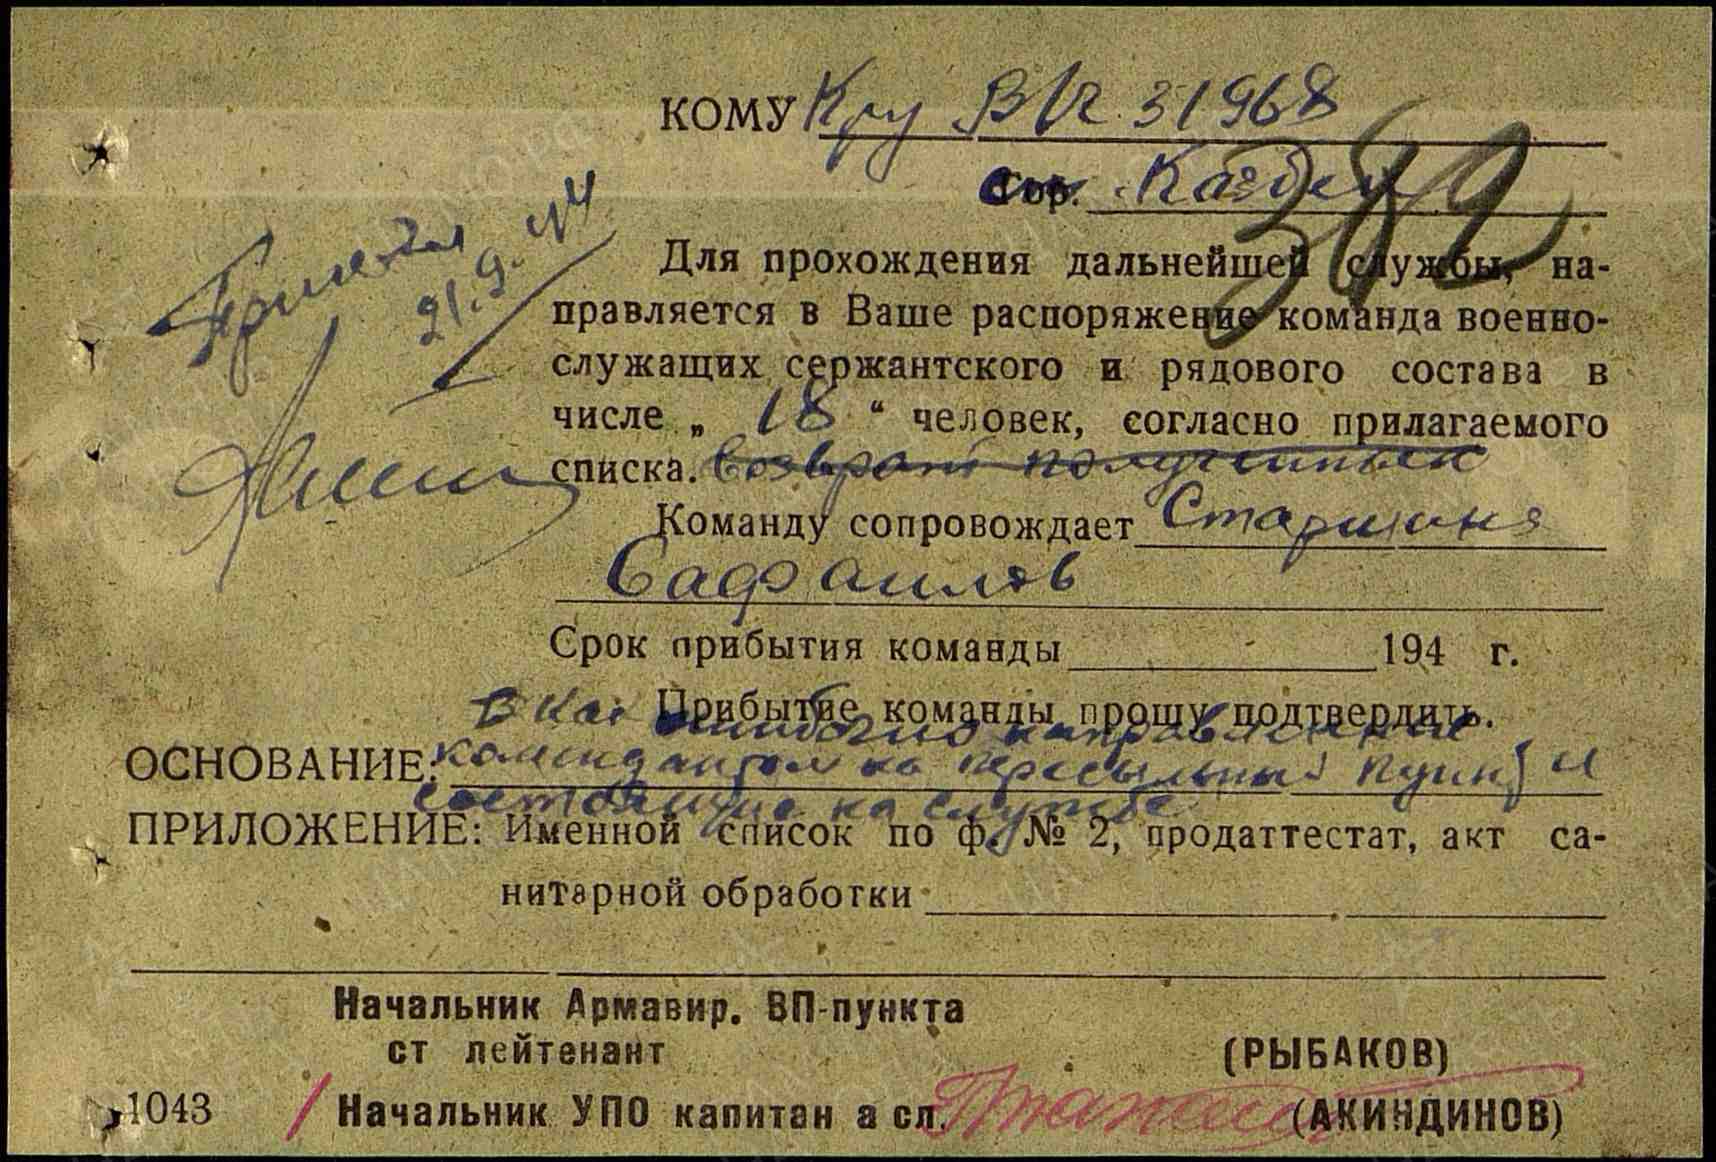 КОМУ Кру В/Ч 31968
Гор.
382
Принял
21.9.44
Для прохождения дальнейшей службы, на-
правляется в Ваше распоряжение команда военно-
служащих сержантского и рядового состава в
числе „ 18 “ человек, согласно прилагаемого
списка. Возврат полученных
Команду сопровождает Старшина
Срок прибытия команды 194 г.
Прибытие команды прошу подтвердить.
ошибочно направленные
ОСНОВАНИЕ: комендантом на пересыльный пункт и
состоящие на службе
ПРИЛОЖЕНИЕ: Именной список по ф. № 2, продаттестат, акт са-
нитарной обработки
Начальник Армавир. ВП-пункта
ст лейтенант (РЫБАКОВ)
1043 Начальник УПО капитан а сл. (АКИНДИНОВ)